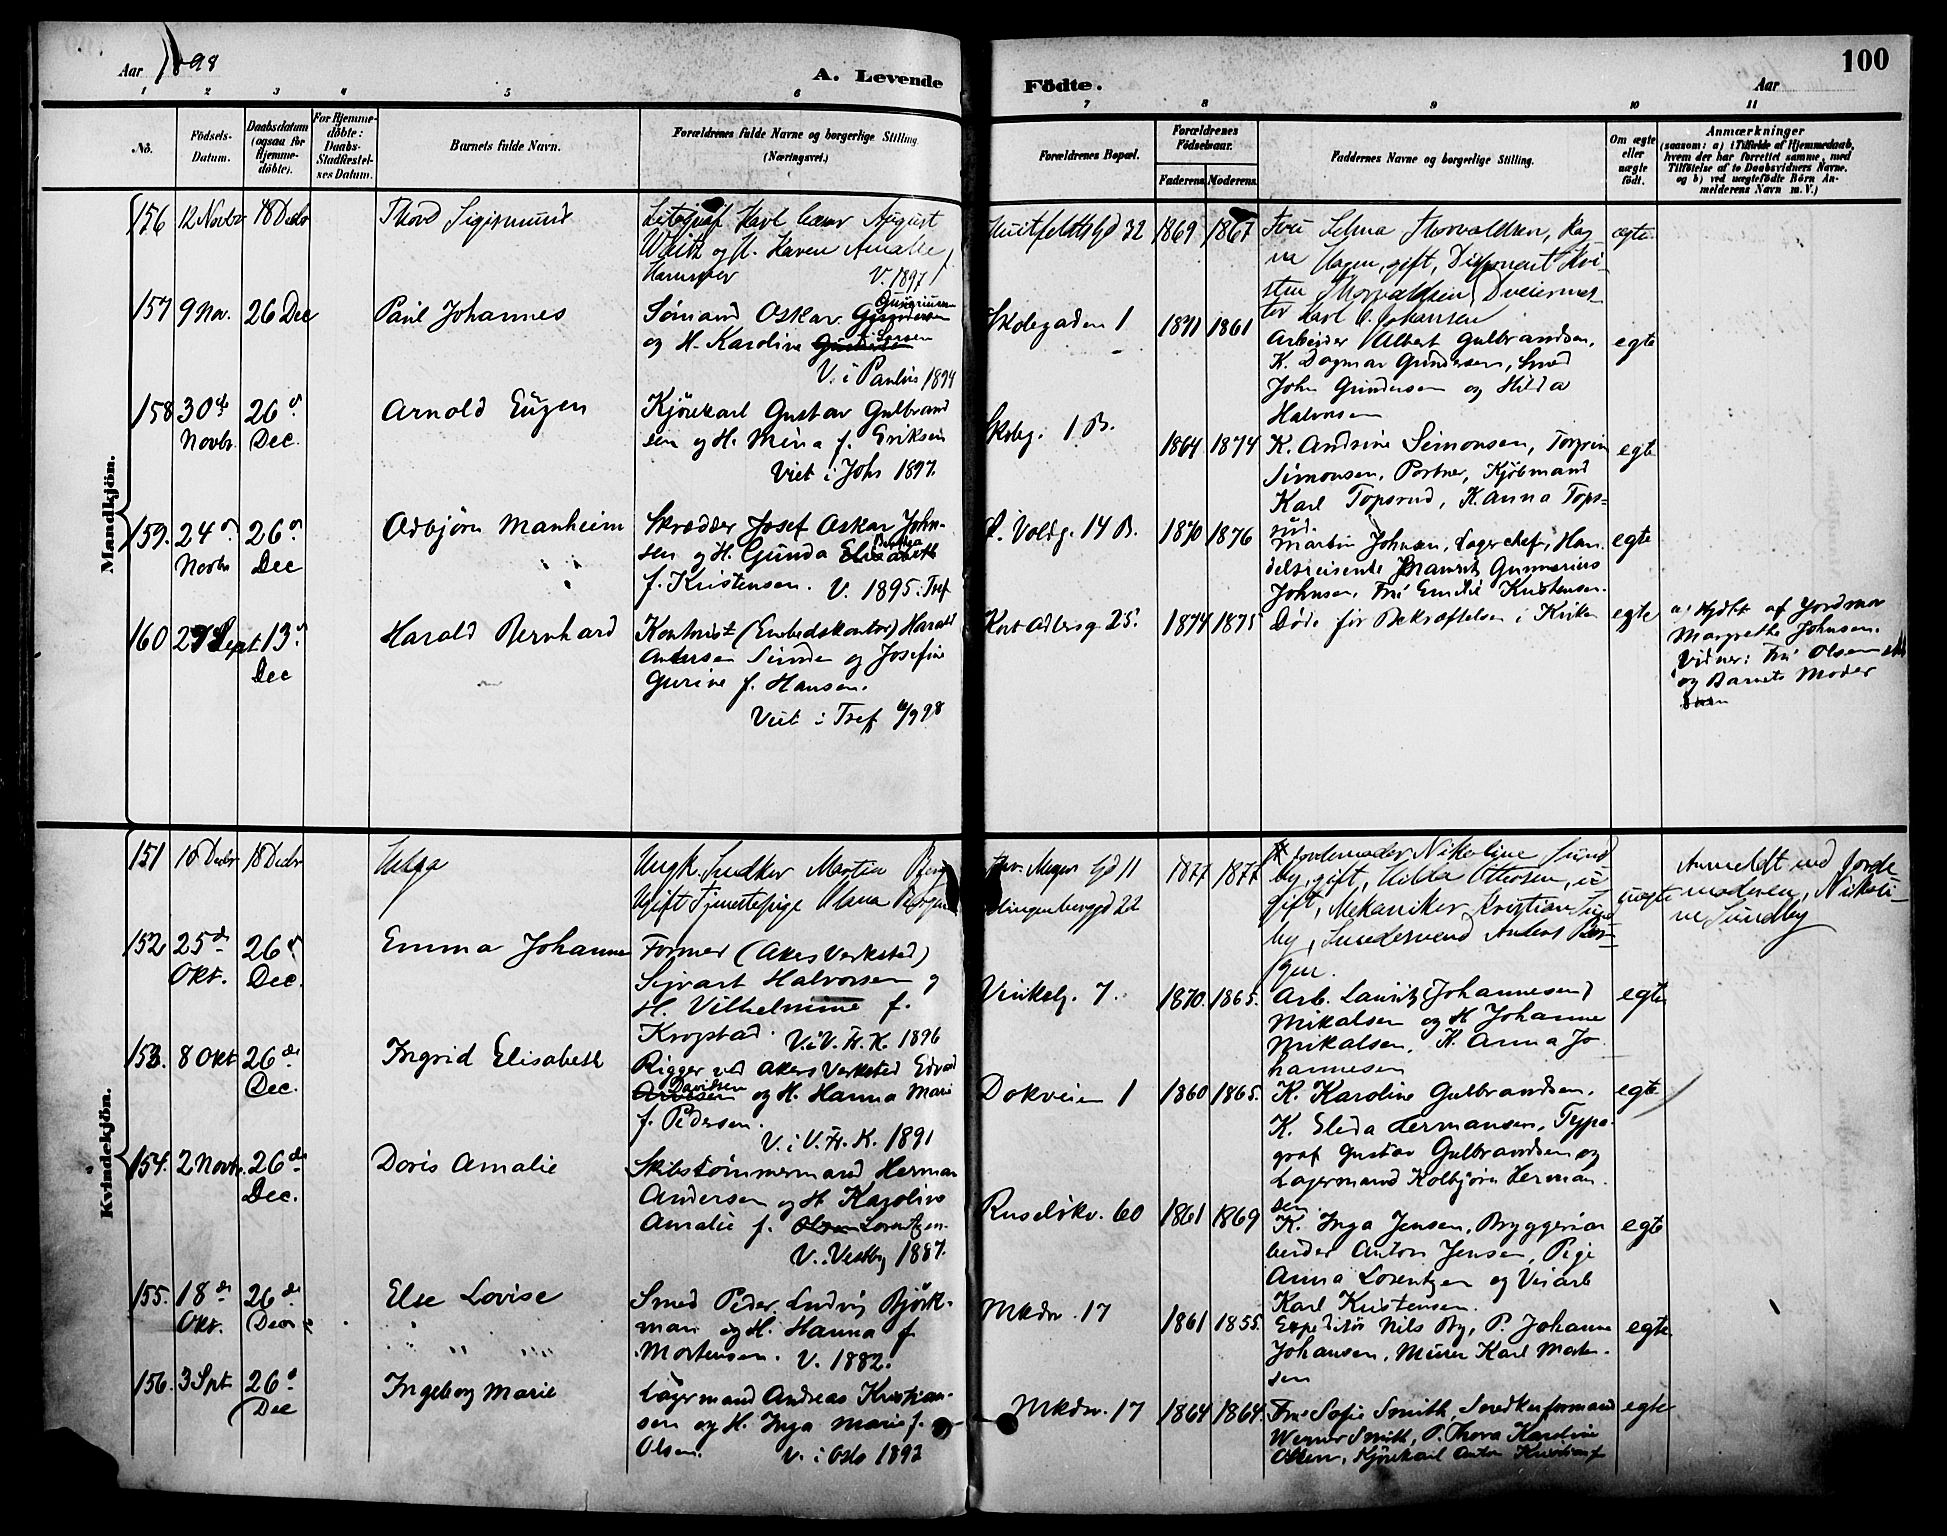 Aar 1898
A. Levende
Födte.
Aar
100
1 2 3 4 5 6 7 8 9 10 11
No.
Födsels-Datum.
Daabsdatum (ogsaa for Hjemme-döbte).
For Hjemme-döbte: Daabs-Stadfestel-ses Datum.
Barnets fulde Navn.
Forældrenes fulde Navne og borgerlige Stilling (Næringsvei.)
Forældrenes Bopæl.
Forældrenes Födselsaar.
Faderens. Moderens.
Faddernes Navne og borgerlige Stilling.
Om ægte eller uægte födt.
Anmærkninger
(saasom: a) i Tilfælde af Hjemmedaab,
hvem der har forrettet samme, med
Tilföielse af to Daabsvidners Navne.
og b) ved uægtefödte Börn An-
melderens Navn m. V.)
Mandkjön.
156 12 Novbr 18 Decbr
Thord Sigismund
August
og H. Karen Amalie
V. 1897
Huitfeldtsgd 32
1869 1867
Fru Selma Thorvaldsen, Rag
na Hagen, gift, Disponent Kri-
sten Thorvaldsen,
ter Karl Johansen
ægte.
157 9 Nov. 26 Dec
Paul Johannes
Sømand Oskar
og H. Karoline f. Larsen
V. i Paulus 1894
Skolegaden 1
1871 1861
Arbeider Albert Gulbrandsen,
K. Dagmar Gundersen, Smed
John Gundersen og Hilda
Halvorsen
egte
158 30 de Novbr. 26 d Dec.
Arnold Eugen
Kjørekarl Gustav Gulbrand
sen og H. Mina f. Eriksen
Viet i Johs 1897.
Skoleg. 1 B.
1864 1874
K. Andrine Simonsen, Torger
Simonsen, Portner, Kjøbmand
Karl Topsrud, K. Anna Tops-
rud.
egte
159. 24 d Novbr 26 d Dec
Odbjørn Manheim
Skrædder Josef Oskar John-
sen og H. Gunda Elisabeth Berthea
f. Kristensen. V. 1895. Tref
N. Voldg. 14 B.
1870 1876
Martin Johnsen, Lagerchef, Han
delsreisende Mauritz Gunnerius
Johnsen, Fru Emilie Kristensen.
egte
160 27 Sept 13 d Dec
Harald Bernhard
Kontorist (Embedskontor) Harald
Andersen Sunde og Josefine
Gurine f. Hansen.
Viet i Tref 98
Kort Adlersg 25.
1874 1875
Døde før Bekræftelsen i Kirken
egte
a, Hjdbt af Jordmor
Margrethe Johnsen.
Vidner: Fru Olsen
og Barnets Moder
Kvindekjön.
151 10 Decbr 18 Decbr
Helga
Ungk. Snedker Martin Berg
Ugift Tjenestepige Olana
Thv. Meyers Gd 11
Klingenberggd 22
1877 1877
Jordemoder Nikoline Sund
by, gift, Hilda Ottersen, u-
gift, Mekaniker Kristian Sund
by, Snedkersvend Anders
gen.
uægte
Anmeldt ved Jorde
moderen, Nikoli-
ne Sundby
152 25 de Okt. 26 d Dec.
Emma Johanne
Former (Akers Verksted)
Sigvart Halvorsen og
H. Vilhelmine f.
Krogstad. V. i V. A. K. 1896
Vinkelg. 7.
1870. 1865.
Arb. Lauritz (Johannesen)
Mikalsen og H Johanne
Mikalsen, K. Anna Jo-
hannesen
egte
153. 8 Okt 26 de Dec.
Ingrid Elisabeth
Rigger ved Akers Verksted Edvard
Arvesen Davidsen og H. Hanna Marie
f. Pedersen.
V. i V. A. K. 1891
Dokveien 1
1860 1865.
K. Karoline Gulbrandsen.
K. Eleda Hermansen, Typo-
graf Gustav Gulbrandsen og
Lagermand Kolbjørn Herman
sen
egte
154. 2 Novb. 26 de Dec.
Doris Amalie
Skibstømmermand Herman
Andersen og H Karoline
Amalie f. Olsen Lorentzen.
V. i Vestby 1887.
Ruseløkv. 60
1861 1869
K. Inga Jensen, Bryggeriar
beider Anton Jensen, Pige
Anna Lorentzen og Veiarb
Karl Kristensen.
egte
155. 18 de Okt. 26 de Dec
Else Lovise
Smed Peder Ludvig Bjørk-
man og H. Hanna f
Mortensen. V. 1882.
Mkdv. 17
1861 1855.
Expeditør Nils By, P. Johanne
Johansen, Murer Karl Morten-
sen
egte
156. 3 Spt 26 d Dec
Ingeborg Marie
Lagermand Andreas Kristian-
sen og H. Inga Marie f.
Olsen. V. i Oslo 1892
Mkdv. 17
1864 1864.
Fru Sofie Smith, Snedkerformand
Werner Smith, P. Thora Karoline
Olsen, Kjørekarl Anton
egte